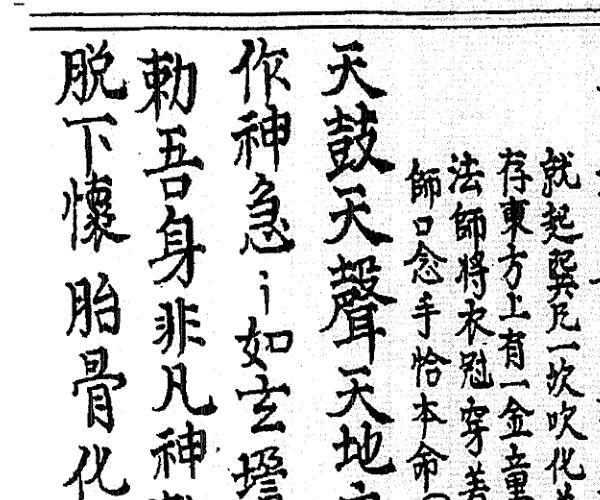 就起巽凡一坎吹化
存東方上有一金童
法師將衣冠穿着
師口念手恰本命
天鼓天聲天地
作神急〻如玄壇
勅吾身非凡神
脱下懷胎骨化